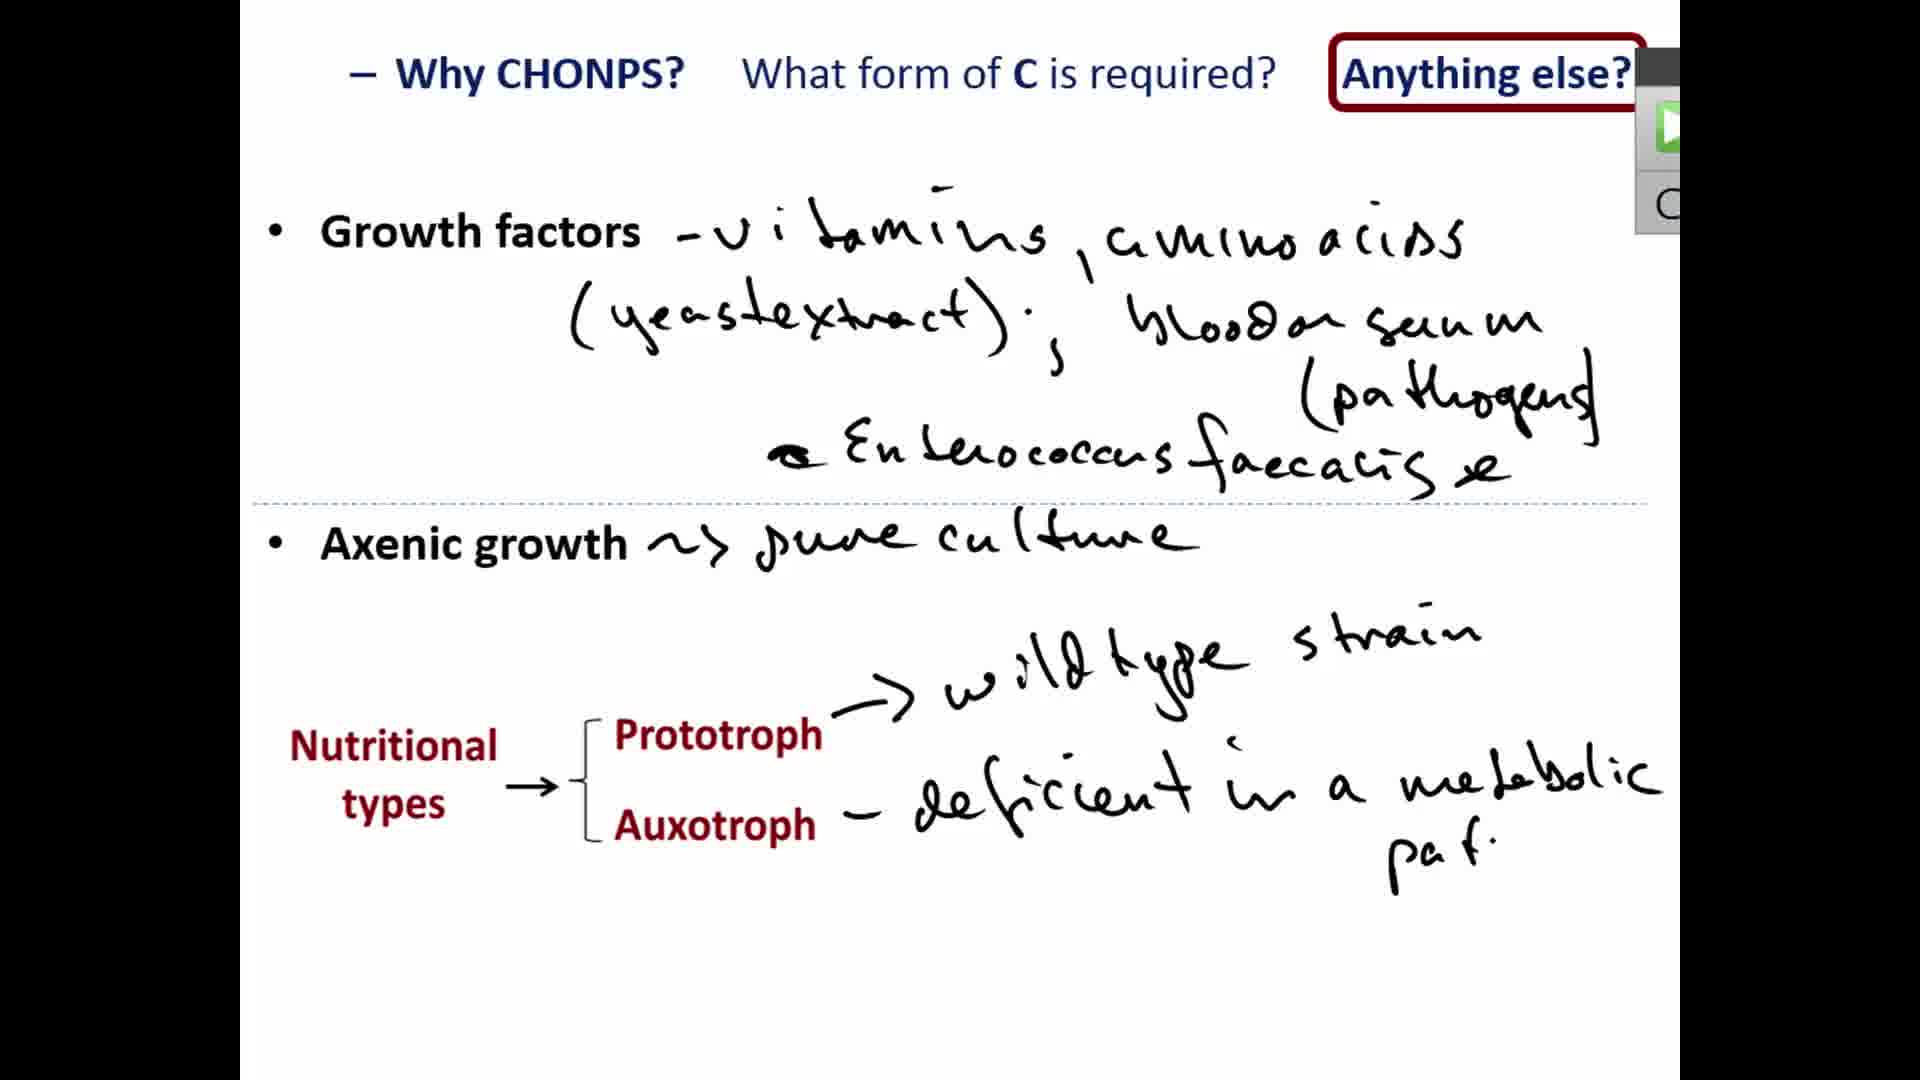 – Why CHONPS? What form of C is required? Anything else?
• Growth factors - vitamins, amino acids
(yeast extract); blood or serum
(pathogens)
- Enterococcus faecalis
• Axenic growth ~> pure culture
→ wild type strain
Nutritional types → Prototroph
Auxotroph – deficient in a metabolic
pat